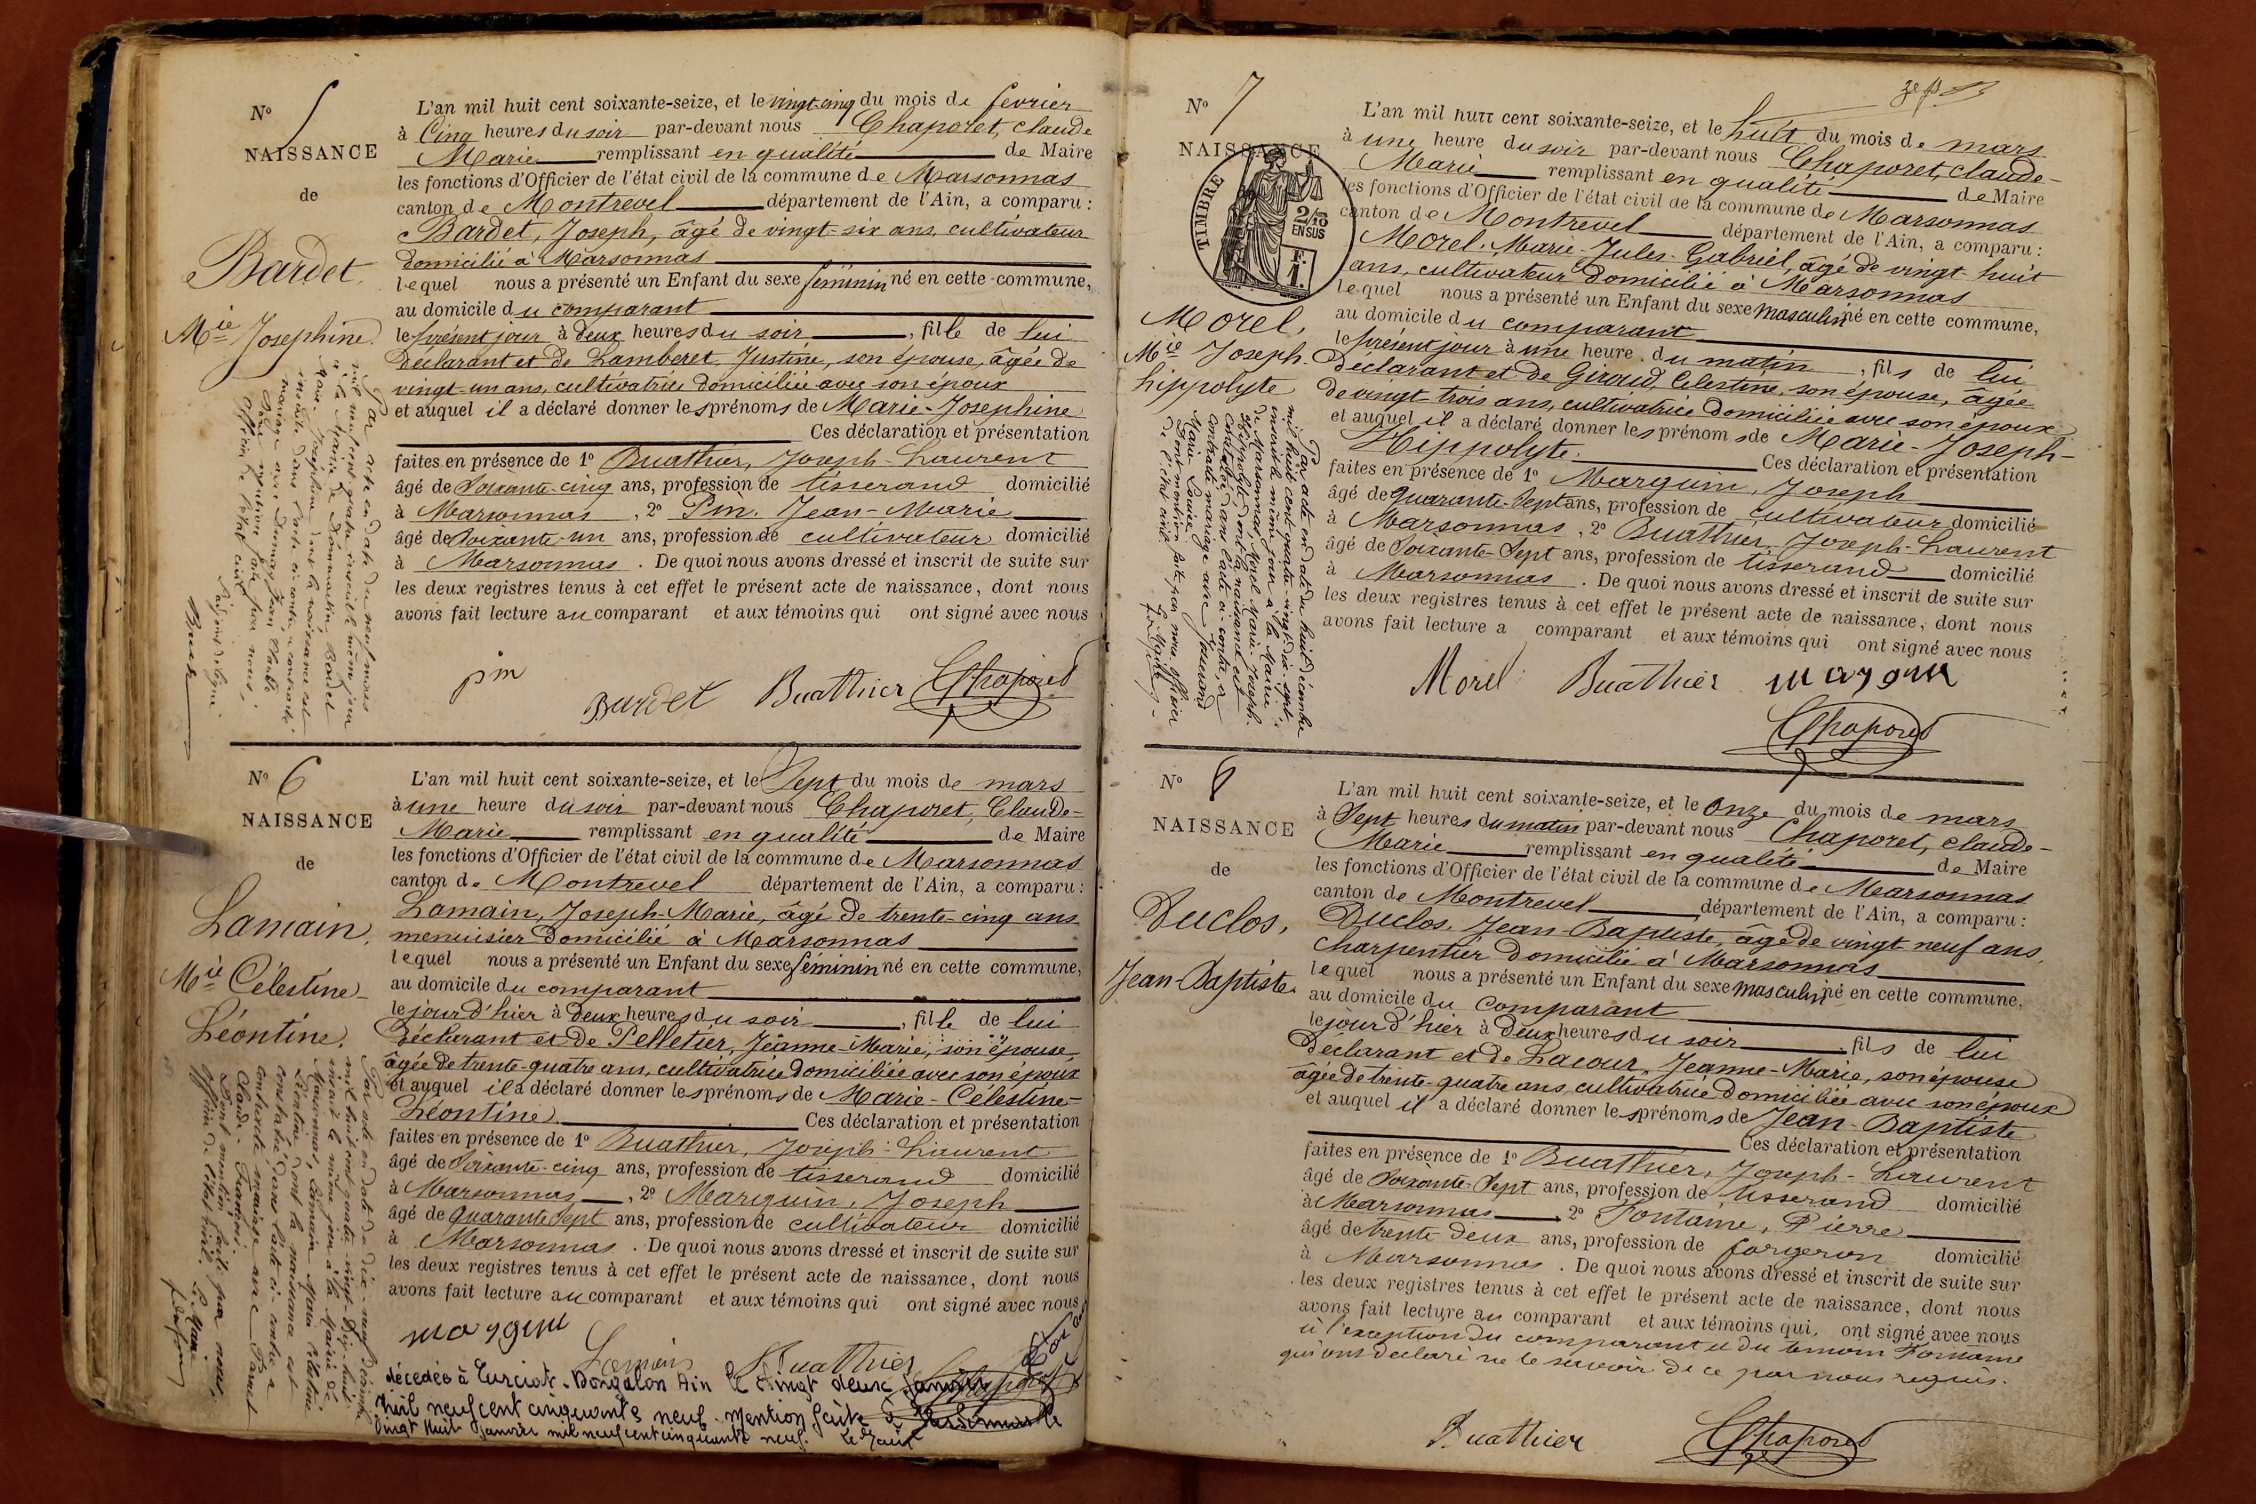 N° 5
NAISSANCE
de
Bardet.
Mie Josephine.
L'an mil huit cent soixante-seize, et le vingt-cinq du mois de fevrier
à Cinq heures du soir par-devant nous Chaporet, claude
Marie remplissant en qualité de Maire
les fonctions d'Officier de l'état civil de la commune de Marsonnas
canton de Montrevel département de l'Ain, a comparu :
Bardet, Joseph, âgé de vingt-six ans, cultivateur
domicilié à Marsonnas
lequel nous a présenté un Enfant du sexe féminin né en cette commune,
au domicile du comparant
le présent jour à deux heures du soir, fille de lui
Déclarant et de Lamberet, Justine, son épouse, âgée de
vingt-un ans, cultivatrice domiciliée avec son époux
et auquel il a déclaré donner les prénoms de Marie-Josephine
Ces déclaration et présentation
faites en présence de 1° Buathier, Joseph-Laurent
âgé de Soixante-cinq ans, profession de tisserand domicilié
à Marsonnas, 2° Pin, Jean-Marie
âgé de Soixante-un ans, profession de cultivateur domicilié
à Marsonnas. De quoi nous avons dressé et inscrit de suite sur
les deux registres tenus à cet effet le présent acte de naissance, dont nous
avons fait lecture au comparant et aux témoins qui ont signé avec nous
Par acte en date du neuf mars
mil neuf cent quatre inscrit le même jour
à la Mairie de Dommartin, Bardet
Marie-Josephine dont la naissance est
inscrite dans l'acte ci-contre, a contracté
mariage avec Jean Claude
Dont mention faite par nous,
Officier de l'état civil
pin Bardet Buathier Chaporet
N° 6
NAISSANCE
de
Lamain.
Mie Célestine-
Léontine.
L'an mil huit cent soixante-seize, et le Sept du mois de mars
à une heure du soir par-devant nous Chaporet, Claude-
Marie remplissant en qualité de Maire
les fonctions d'Officier de l'état civil de la commune de Marsonnas
canton de Montrevel département de l'Ain, a comparu :
Lamain, Joseph-Marie, âgé de trente-cinq ans
menuisier domicilié à Marsonnas
lequel nous a présenté un Enfant du sexe féminin né en cette commune,
au domicile du comparant
le jour d'hier à deux heures du soir, fille de lui
Déclarant et de Pelletier, Jeanne-Marie, son épouse,
âgée de trente-quatre ans, cultivatrice domiciliée avec son époux
et auquel il a déclaré donner les prénoms de Marie-Célestine-
Léontine. Ces déclaration et présentation
faites en présence de 1° Buathier, Joseph-Laurent
âgé de Soixante-cinq ans, profession de tisserand domicilié
à Marsonnas, 2° Marguin, Joseph
âgé de quarante Sept ans, profession de cultivateur domicilié
à Marsonnas. De quoi nous avons dressé et inscrit de suite sur
les deux registres tenus à cet effet le présent acte de naissance, dont nous
avons fait lecture au comparant et aux témoins qui ont signé avec nous
Par acte en date du dix-neuf décembre
mil huit cent quatre-vingt-dix-huit
inscrit le même jour à la Mairie de
Marsonnas, Lamain Marie Célestine
Léontine dont la naissance est
constatée dans l'acte ci-contre a
contracté mariage avec
Claude-François.
Dont mention faite par nous,
Officier de l'état civil. Le Maire
marguin Lamain Buathier Chaporet
décédée à Ain le vingt deux janvier
mil neuf cent cinquante neuf. Mention faite à Marsonnas le
vingt huit janvier mil neuf cent cinquante neuf.
N° 7
NAISSANCE
TIMBRE
2/10 EN SUS
F. 1.
Morel,
Mie Joseph-
hippolyte
L'an mil huit cent soixante-seize, et le huit du mois de mars
à une heure du soir par-devant nous Chaporet, claude-
Marie remplissant en qualité de Maire
les fonctions d'Officier de l'état civil de la commune de Marsonnas
canton de Montrevel département de l'Ain, a comparu :
Morel, Marie-Jules-Gabriel, âgé de vingt-huit
ans, cultivateur domicilié à Marsonnas
lequel nous a présenté un Enfant du sexe masculin né en cette commune,
au domicile du comparant
le présent jour à une heure du matin, fils de lui
Déclarant et de Giroud, Celestine, son épouse, âgée
de vingt-trois ans, cultivatrice domiciliée avec son époux
et auquel il a déclaré donner les prénoms de Marie-Joseph-
Hippolyte. Ces déclaration et présentation
faites en présence de 1° Marguin, Joseph
âgé de quarante-Sept ans, profession de cultivateur domicilié
à Marsonnas, 2° Buathier, Joseph-Laurent
âgé de Soixante-Sept ans, profession de tisserand domicilié
à Marsonnas. De quoi nous avons dressé et inscrit de suite sur
les deux registres tenus à cet effet le présent acte de naissance, dont nous
avons fait lecture a comparant et aux témoins qui ont signé avec nous
Par acte en date du huit décembre
mil huit cent quatre-vingt-dix-sept,
inscrit le même jour à la Mairie
de Marsonnas, Morel Marie-Joseph-
Hippolyte, dont la naissance est
constatée dans l'acte ci-contre, a
contracté mariage avec Josserand
Marie-Louise.
Dont mention faite par nous officier
de l'état civil. Le Maire
Morel Buathier marguin
Chaporet
N° 8
NAISSANCE
de
Duclos,
Jean-Baptiste.
L'an mil huit cent soixante-seize, et le onze du mois de mars
à Sept heures du matin par-devant nous Chaporet, claude-
Marie remplissant en qualité de Maire
les fonctions d'Officier de l'état civil de la commune de Marsonnas
canton de Montrevel département de l'Ain, a comparu :
Duclos, Jean-Baptiste, âgé de vingt-neuf ans,
charpentier domicilié à Marsonnas
lequel nous a présenté un Enfant du sexe masculin né en cette commune,
au domicile du comparant
le jour d'hier à deux heures du soir, fils de lui
Déclarant et de Lacour, Jeanne-Marie, son épouse
âgée de trente-quatre ans, cultivatrice domiciliée avec son époux
et auquel il a déclaré donner les prénoms de Jean-Baptiste
Ces déclaration et présentation
faites en présence de 1° Buathier, Joseph-Laurent
âgé de Soixante-Sept ans, profession de tisserand domicilié
à Marsonnas, 2° Fontaine, Pierre
âgé de trente deux ans, profession de forgeron domicilié
à Marsonnas. De quoi nous avons dressé et inscrit de suite sur
les deux registres tenus à cet effet le présent acte de naissance, dont nous
avons fait lecture au comparant et aux témoins qui, ont signé avec nous
à l'exception du comparant et du témoin Fontaine
qui ont déclaré ne le savoir de ce par nous requis.
Buathier Chaporet